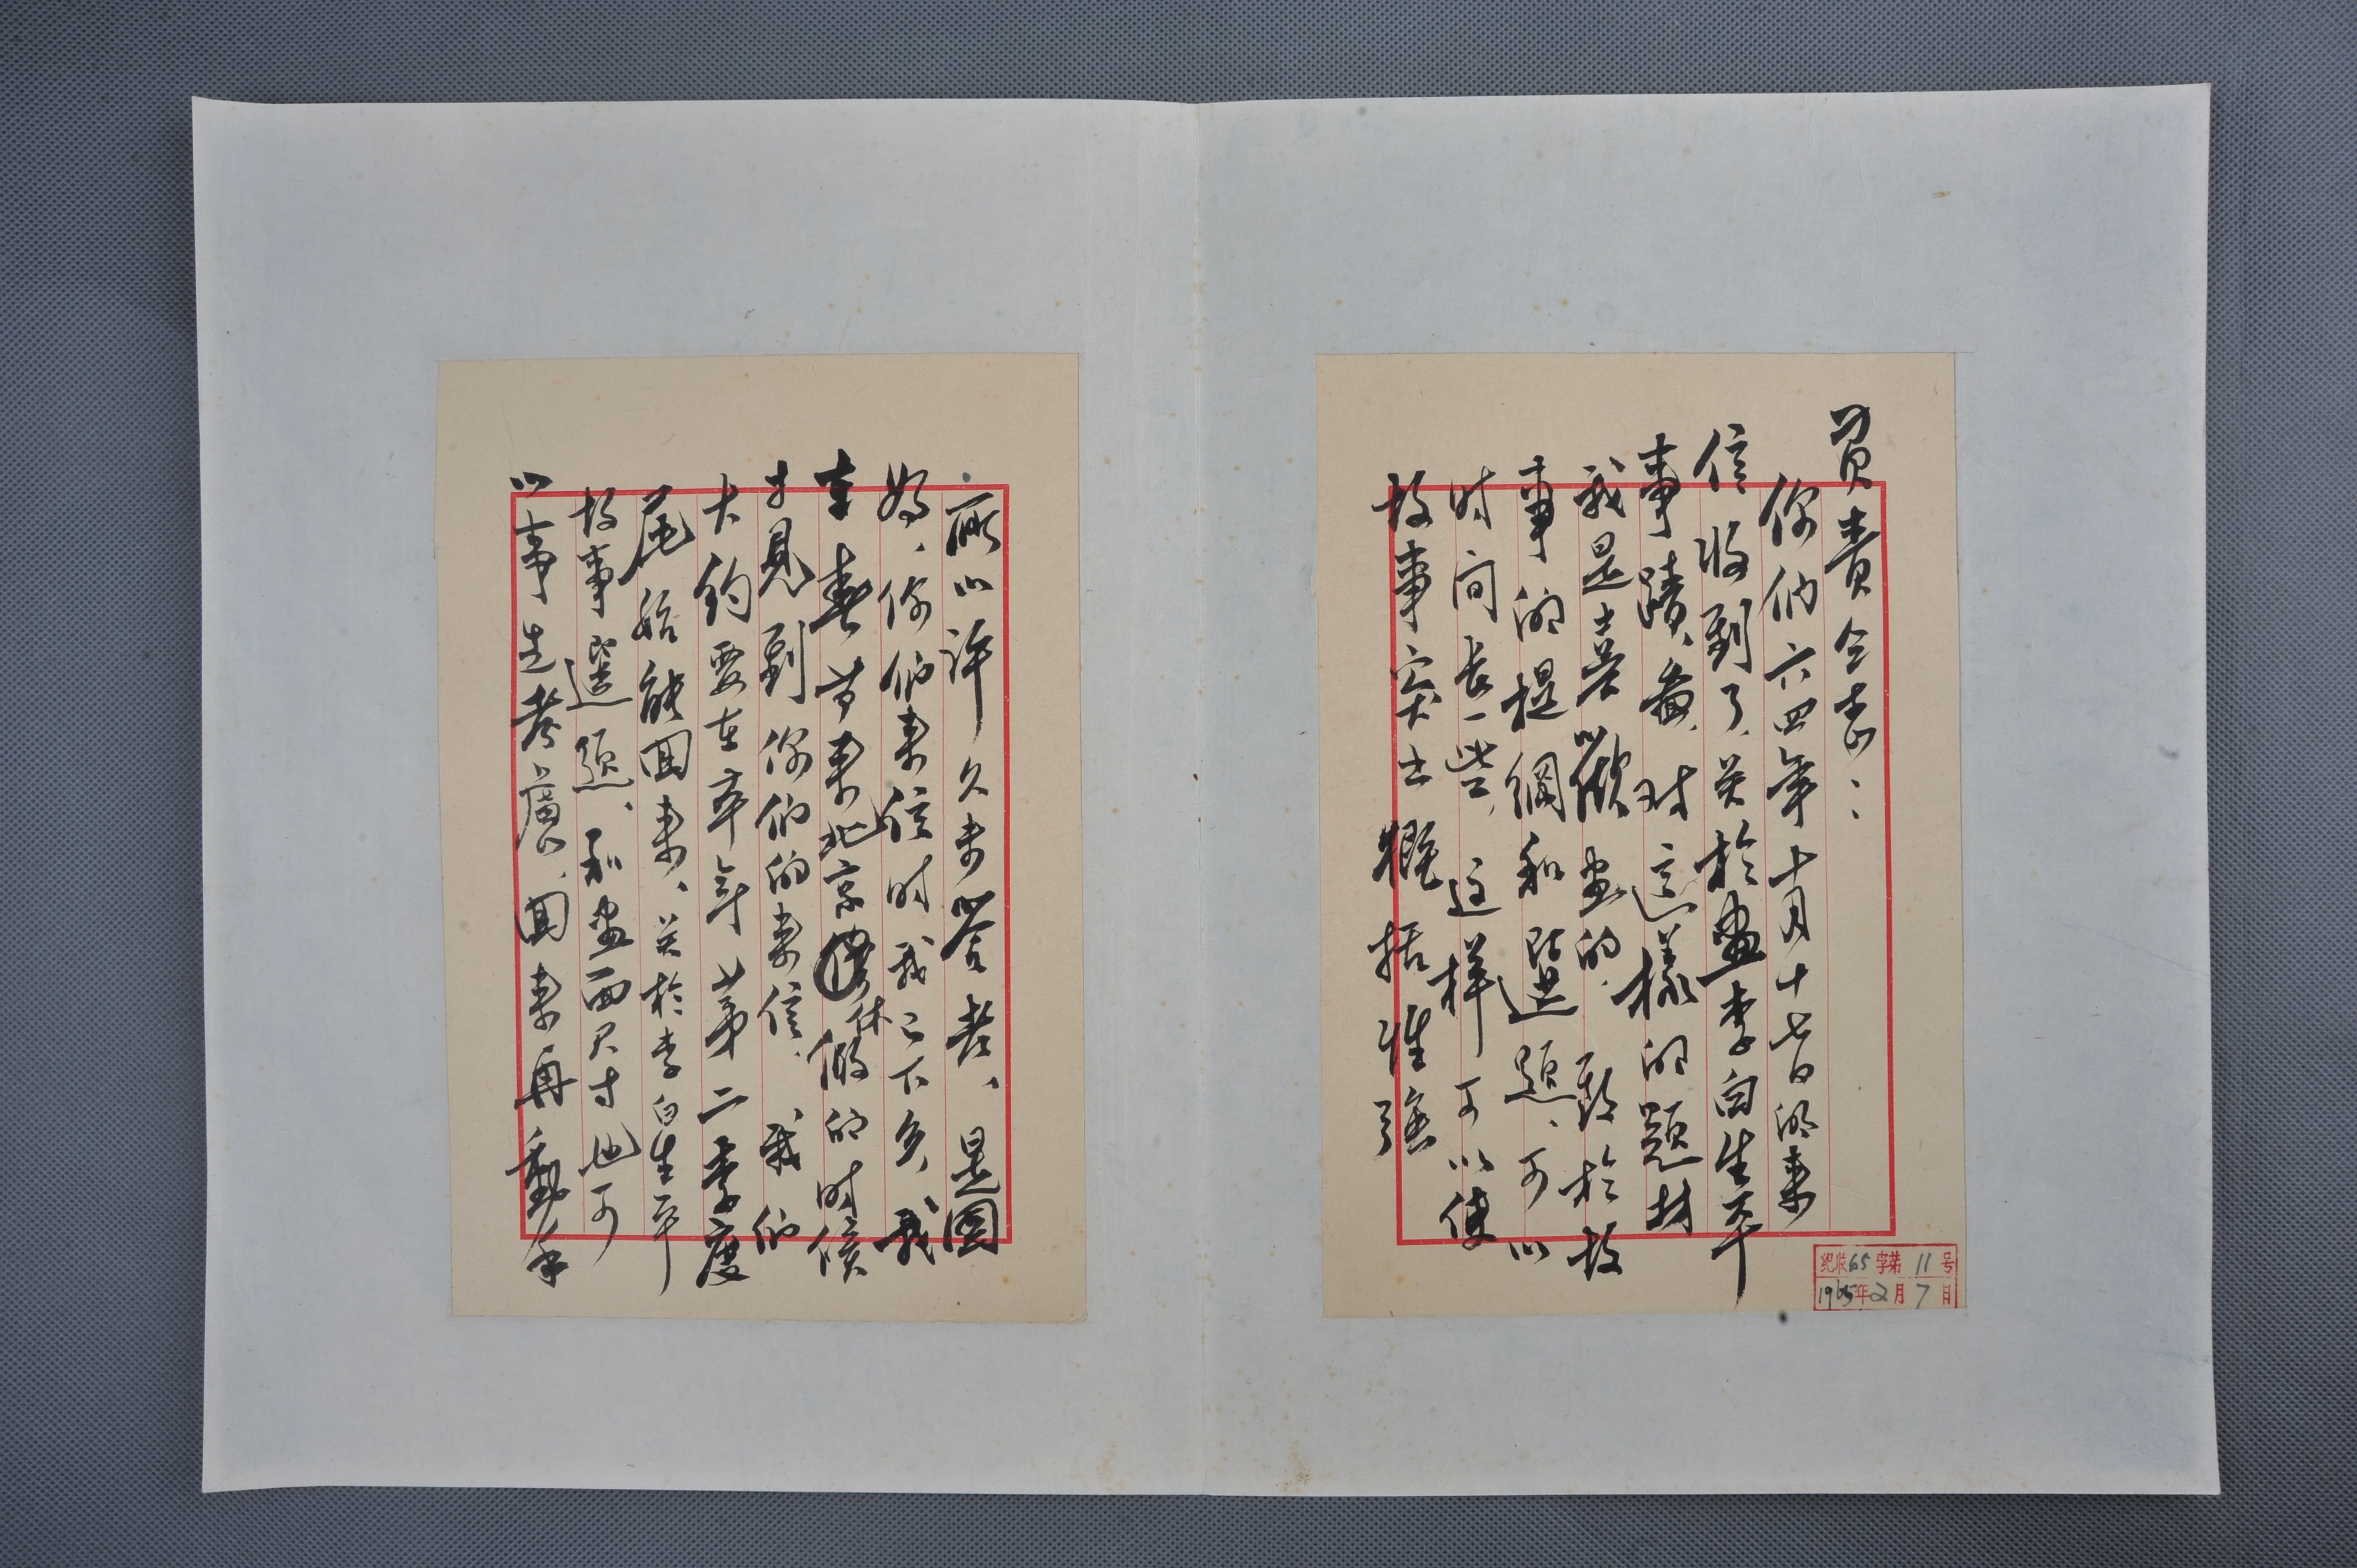 负责仝志：
你们六四年十月十七日的来
信收到了，关於画李白生平
事蹟，画，对這樣的题材
我是喜歡画的，致於故
事的提綱和選题、可以
时间长一些，这样可以使
故事突出概括准确
所以许久未答者、是因
为，你们来信时我已下乡，我
春节来北京休假的时候
才见到你们的来信，我们
大约要在本年第二季度
尾始能回来、关於李白生平
故事選题、和画面尺寸也可
以事先考慮，回来再動手
纪收65字第11号
1965年2月7日